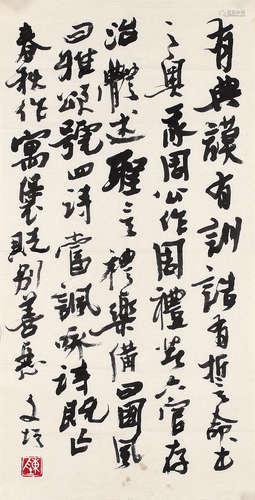 有典謨有訓誥有誓命書
之奧我周公作周禮著六官存
治體述聖言禮樂備曰國風
曰雅頌號四詩當諷詠詩既亡
春秋作寓褒貶别善惡 文